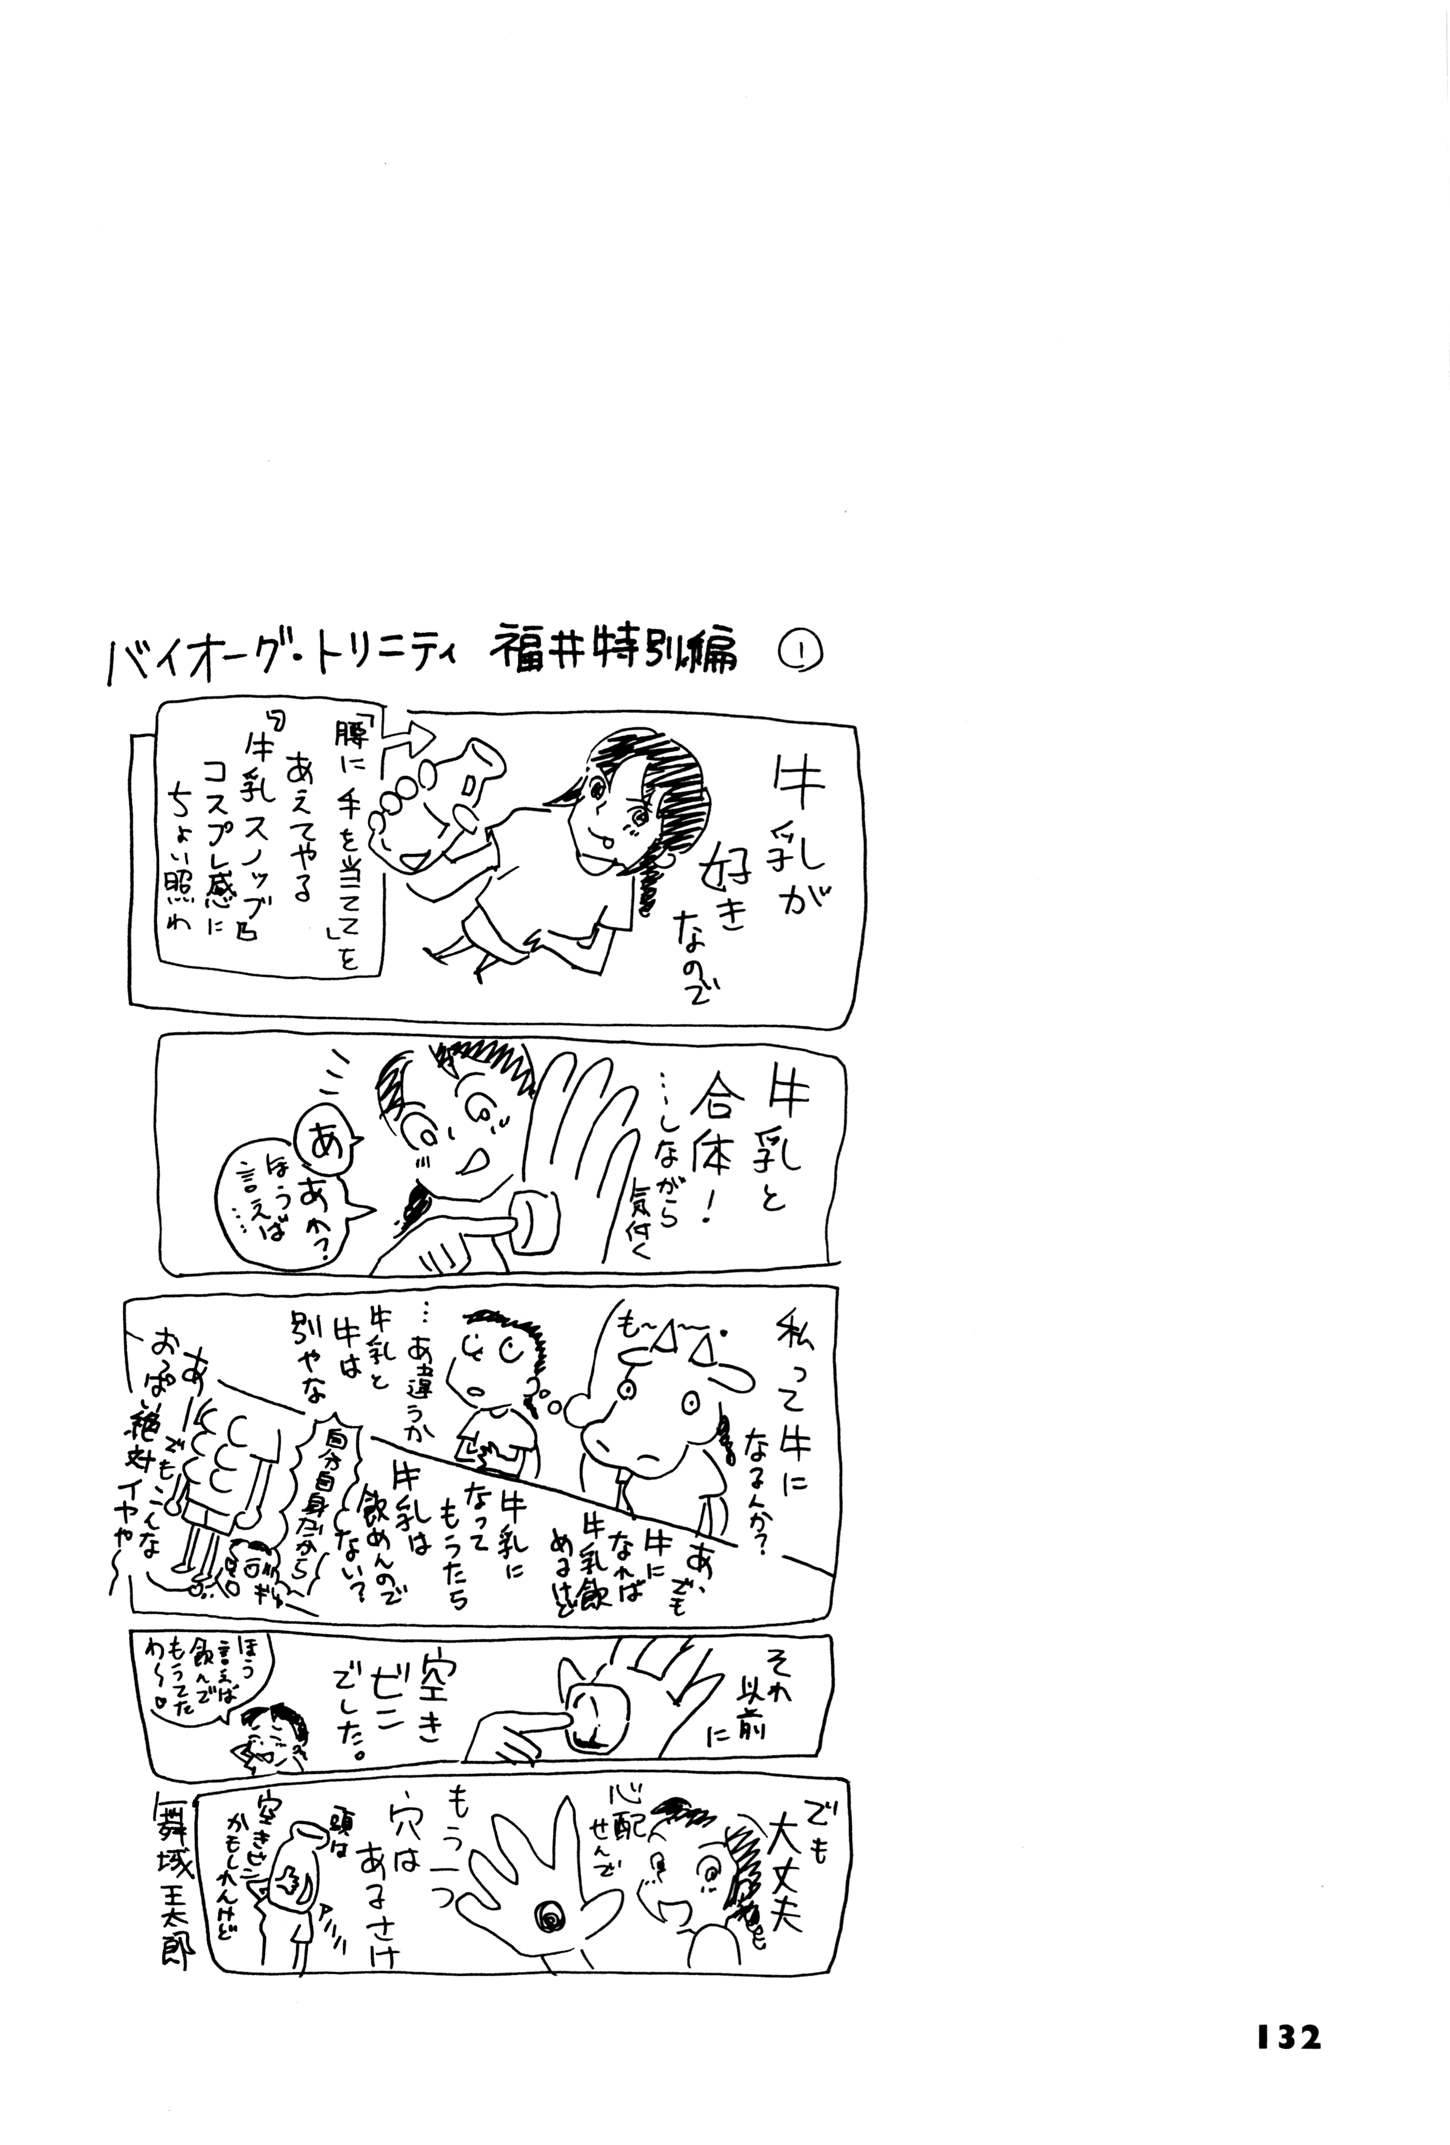 バイオーグ・トリニティ 福井特別編 ①
牛乳が
好き
なので
「腰に手を当てて」を
あえてやる
『牛乳スノッブ』
コスプレ感に
ちょい照れ
牛乳と
合体!
…しながら
気付く
あ
あれ?
ほう
言えば…
私って牛に
なるんか?
も〜〜
…あ違うか
牛乳と
牛は
別やな
あ、でも
牛に
なれば
牛乳飲
めるけど
牛乳に
なって
もうたら
牛乳は
飲めんので
ない?
自分自身だから
あ
でもこんな
おっぱい絶対イヤや〜
それ
以前
に
空き
ビン
でした。
ほう
言えば
飲んで
もうてた
わ〜♡
でも
大丈夫
心配
せんで
もう一つ
穴は
あるさけ
頭は
空きビン
かもしれんけど
舞城王太郎
132